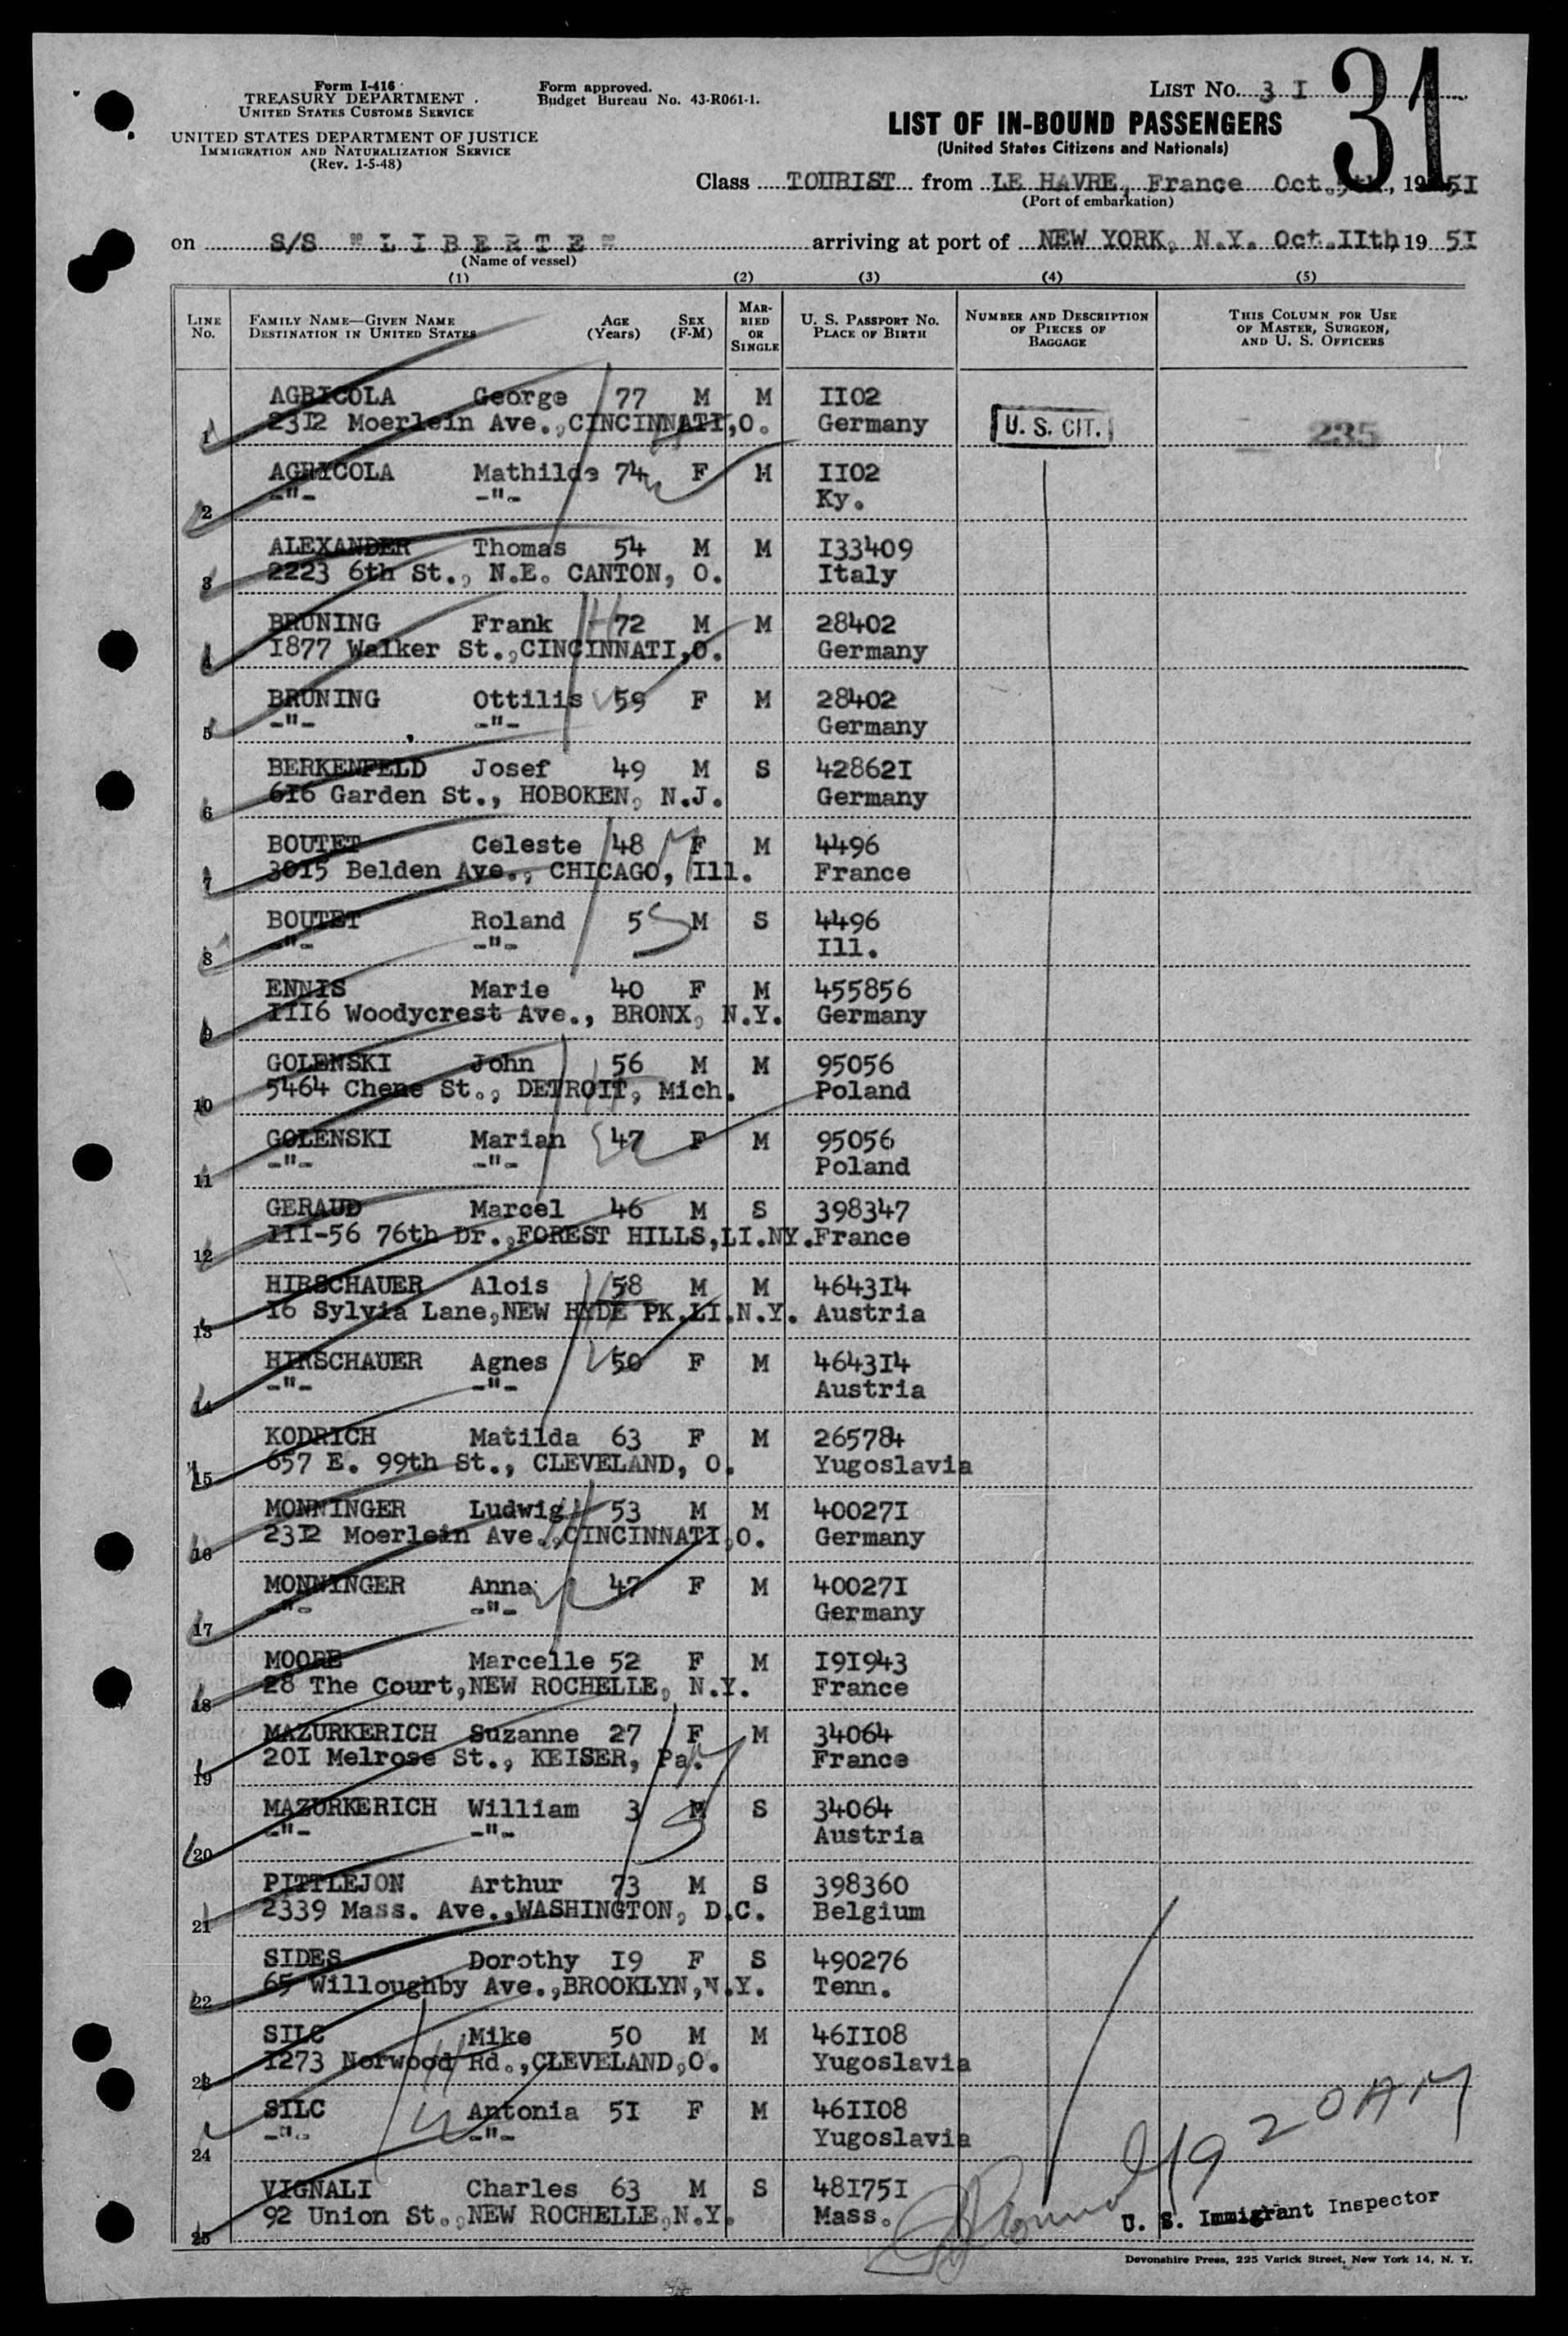 Form I-416
TREASURY DEPARTMENT
UNITED STATES CUSTOMS SERVICE
UNITED STATES DEPARTMENT OF JUSTICE
IMMIGRATION AND NATURALIZATION SERVICE
(Rev. 1-5-48)
Form approved.
Budget Bureau No. 43-R061-1.
LIST NO. 3 I
31
LIST OF IN-BOUND PASSENGERS
(United States Citizens and Nationals)
Class TOURIST from LE HAVRE, France Oct. 5th, 1951
(Port of embarkation)
on S/S "LIBERTE" arriving at port of NEW YORK, N.Y. Oct.IIth, 19 5I
(Name of vessel)
(1) (2) (3) (4) (5)
LINE NO. FAMILY NAME—GIVEN NAME DESTINATION IN UNITED STATES AGE (Years) SEX (F-M) MARRIED OR SINGLE U. S. PASSPORT NO. PLACE OF BIRTH NUMBER AND DESCRIPTION OF PIECES OF BAGGAGE THIS COLUMN FOR USE OF MASTER, SURGEON, AND U. S. OFFICERS
AGRICOLA George 77 M M II02
1 23I2 Moerlein Ave., CINCINNATI,O. Germany U. S. CIT. 235
AGRICOLA Mathilde 74 F M II02
2 -"- -"- Ky.
ALEXANDER Thomas 54 M M I33409
3 2223 6th St., N.E. CANTON, O. Italy
BRUNING Frank 72 M M 28402
4 I877 Walker St.,CINCINNATI,O. Germany
BRUNING Ottilis 59 F M 28402
5 -"- -"- Germany
BERKENFELD Josef 49 M S 42862I
6 6I6 Garden St., HOBOKEN, N.J. Germany
BOUTET Celeste 48 F M 4496
7 30I5 Belden Ave., CHICAGO, Ill. France
BOUTET Roland 5 M S 4496
8 -"- -"- Ill.
ENNIS Marie 40 F M 455856
9 III6 Woodycrest Ave., BRONX, N.Y. Germany
GOLENSKI John 56 M M 95056
10 5464 Chene St., DETROIT, Mich. Poland
GOLENSKI Marian 47 F M 95056
11 -"- -"- Poland
GERAUD Marcel 46 M S 398347
12 III-56 76th Dr.,FOREST HILLS,LI.NY. France
HIRSCHAUER Alois 58 M M 4643I4
13 I6 Sylvia Lane,NEW HYDE PK.LI.N.Y. Austria
HIRSCHAUER Agnes 50 F M 4643I4
14 -"- -"- Austria
KODRICH Matilda 63 F M 265784
15 657 E. 99th St., CLEVELAND, O. Yugoslavia
MONNINGER Ludwig 53 M M 40027I
16 23I2 Moerlein Ave.,CINCINNATI,O. Germany
MONNINGER Anna 47 F M 40027I
17 -"- -"- Germany
MOORE Marcelle 52 F M I9I943
18 28 The Court,NEW ROCHELLE, N.Y. France
MAZURKERICH Suzanne 27 F M 34064
19 20I Melrose St., KEISER, Pa. France
MAZURKERICH William 3 M S 34064
20 -"- -"- Austria
PITTLEJON Arthur 73 M S 398360
21 2339 Mass. Ave.,WASHINGTON, D.C. Belgium
SIDES Dorothy I9 F S 490276
22 65 Willoughby Ave.,BROOKLYN,N.Y. Tenn.
SILC Mike 50 M M 46II08
23 I273 Norwood Rd.,CLEVELAND,O. Yugoslavia
SILC Antonia 5I F M 46II08
24 -"- -"- Yugoslavia
VIGNALI Charles 63 M S 48I75I
25 92 Union St.,NEW ROCHELLE,N.Y. Mass.
9 20 AM
U. S. Immigrant Inspector
Devonshire Press, 225 Varick Street, New York 14, N. Y.